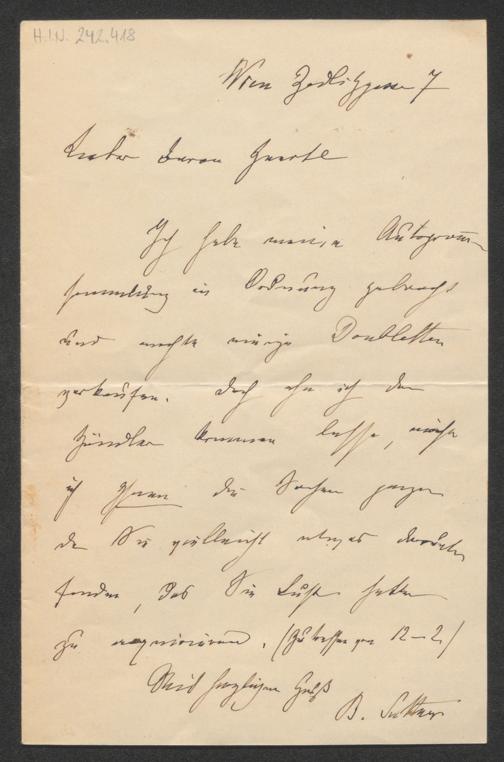 H.I.N. 242.418
Wien Zedlitzgasse 7
Lieber Baron
Ich habe meine Autogram̅-
sammlung in Ordnung gebracht
und möchte einige Doubletten
verkaufen. Doch ehe ich den
Händler kommen lasse, möchte
ich Ihnen die Sachen zeigen
da Sie vielleicht etwas darunter
finden, das Sie Lust haben
zu acquiriren. (Zu treffen von 12–2)
Mit herzlichem Gruß
B. Suttner